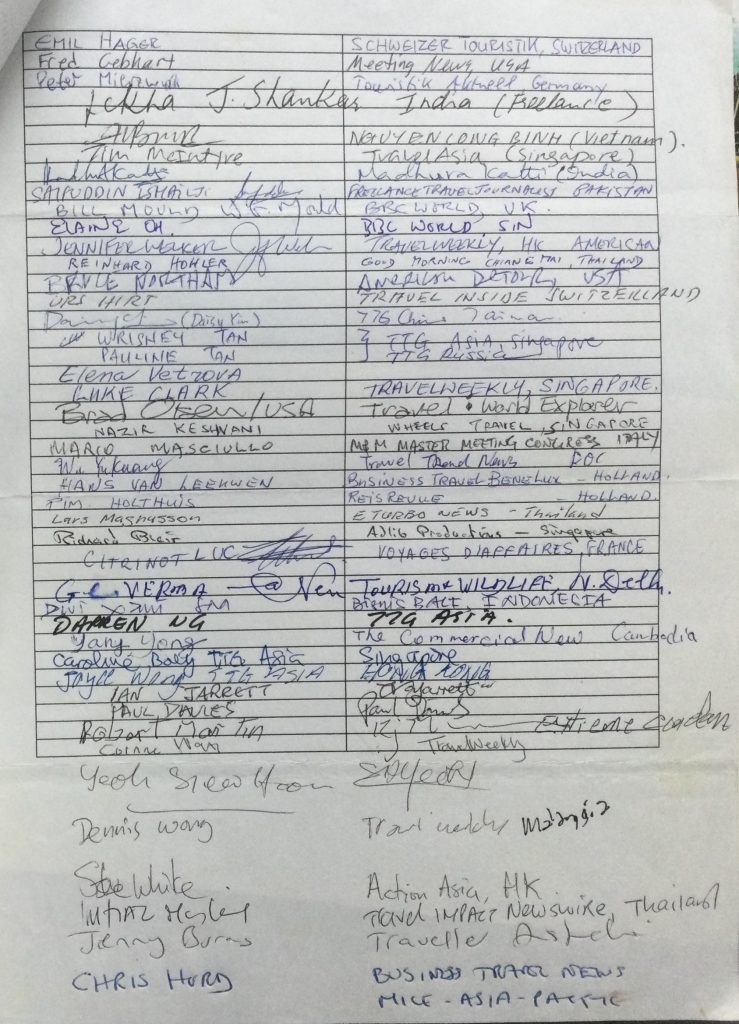 EMIL HAGER SCHWEIZER TOURISTIK, SWITZERLAND
Fred Gebhart Meeting News, USA
Peter Touristik Aktuell Germany
Lekha J. Shankar India (Freelance)
NGUYEN CONG BINH (Vietnam).
Tim McIntyre Travel Asia (Singapore)
Madhura Katti (India)
SAIFUDDIN ISMAILJI FREELANCE TRAVEL JOURNALIST PAKISTAN
BILL MOULD W.E. Mould BBC WORLD, UK.
ELAINE OH. BBC WORLD, SIN
JENNIFER WELKER TRAVELWEEKLY, HK AMERICAN
REINHARD HOHLER GOOD MORNING CHIANG MAI, THAILAND
BRUCE NORTHAM AMERICAN DETOUR, USA
URS HIRT TRAVEL INSIDE SWITZERLAND
(Daisy Yin) TTG China Taiwan
WRISNEY TAN } TTG ASIA, Singapore
PAULINE TAN TTG Russia
Elena Vetrova
LUKE CLARK TRAVELWEEKLY, SINGAPORE.
Brad Olsen/USA Travel • World Explorer
NAZIR KESHVANI WHEELS TRAVEL, SINGAPORE
MARIO MASCIULLO M&M MASTER MEETING CONGRESS ITALY
Travel Trend News ROC
HANS VAN LEEUWEN BUSINESS TRAVEL BENELUX - HOLLAND.
PIM HOLTHUIS REISREVUE - HOLLAND.
Lars Magnusson ETURBO NEWS - Thailand
Richard Blair Adlib Productions - Singapore
CITRINOT LUC VOYAGES D'AFFAIRES, FRANCE
G.C. VERMA TOURISM & WILDLIFE, N. Delhi
Dwi BISNIS BALI, INDONESIA
DARREN NG TTG ASIA.
Yang Yong The Commercial New Cambodia
Caroline Boey TTG Asia Singapore
Joyce Wong TTG ASIA HONG KONG
IAN JARRETT
PAUL DAVIES
Robert Martin
Corine Wong TravelWeekly
Yeoh Siew Hoon
Dennis Wong Travel weekly Malaysia
Steve White Action Asia, HK
IMTIAZ Travel IMPACT NEWSWIRE, Thailand
Jenny Burns Traveller
CHRIS HURD BUSINESS TRAVEL NEWS
MICE-ASIA-PACIFIC